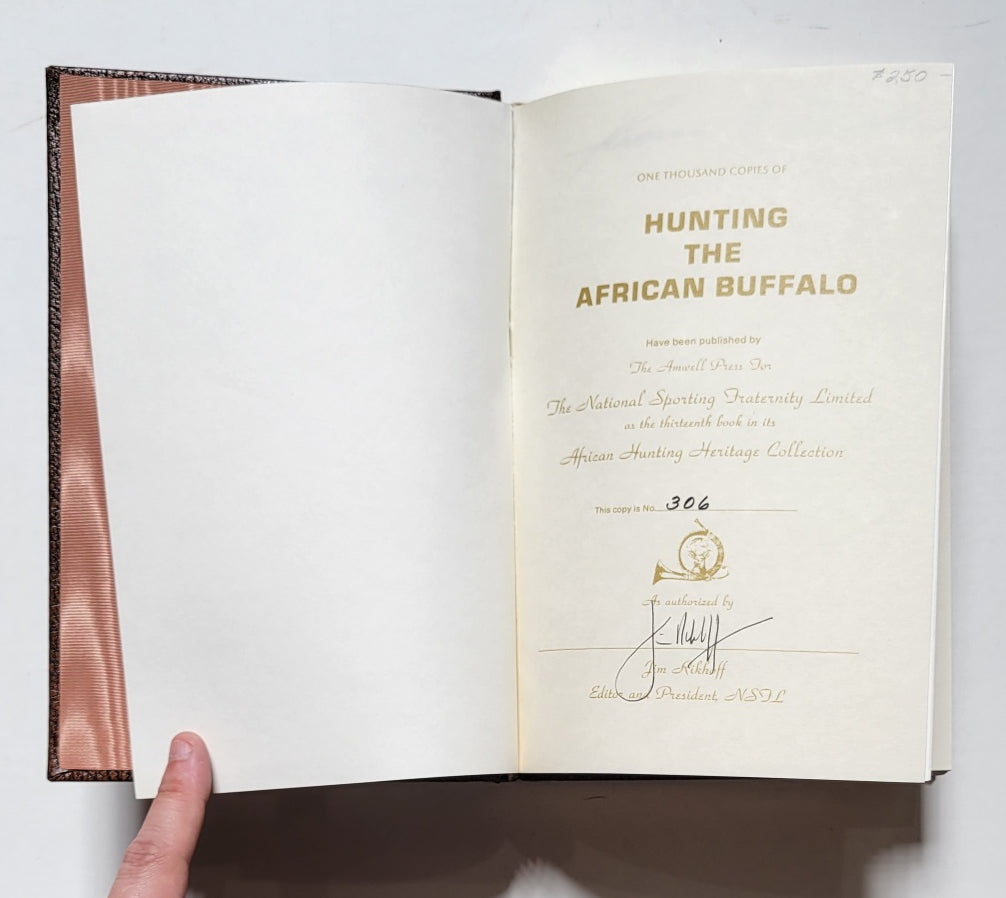 $250 -
ONE THOUSAND COPIES OF
HUNTING
THE
AFRICAN BUFFALO
Have been published by
The Amwell Press For
The National Sporting Fraternity Limited
as the thirteenth book in its
African Hunting Heritage Collection
This copy is No. 306
As authorized by
Jim Rikhoff
Jim Rikhoff
Editor and President, NSFL